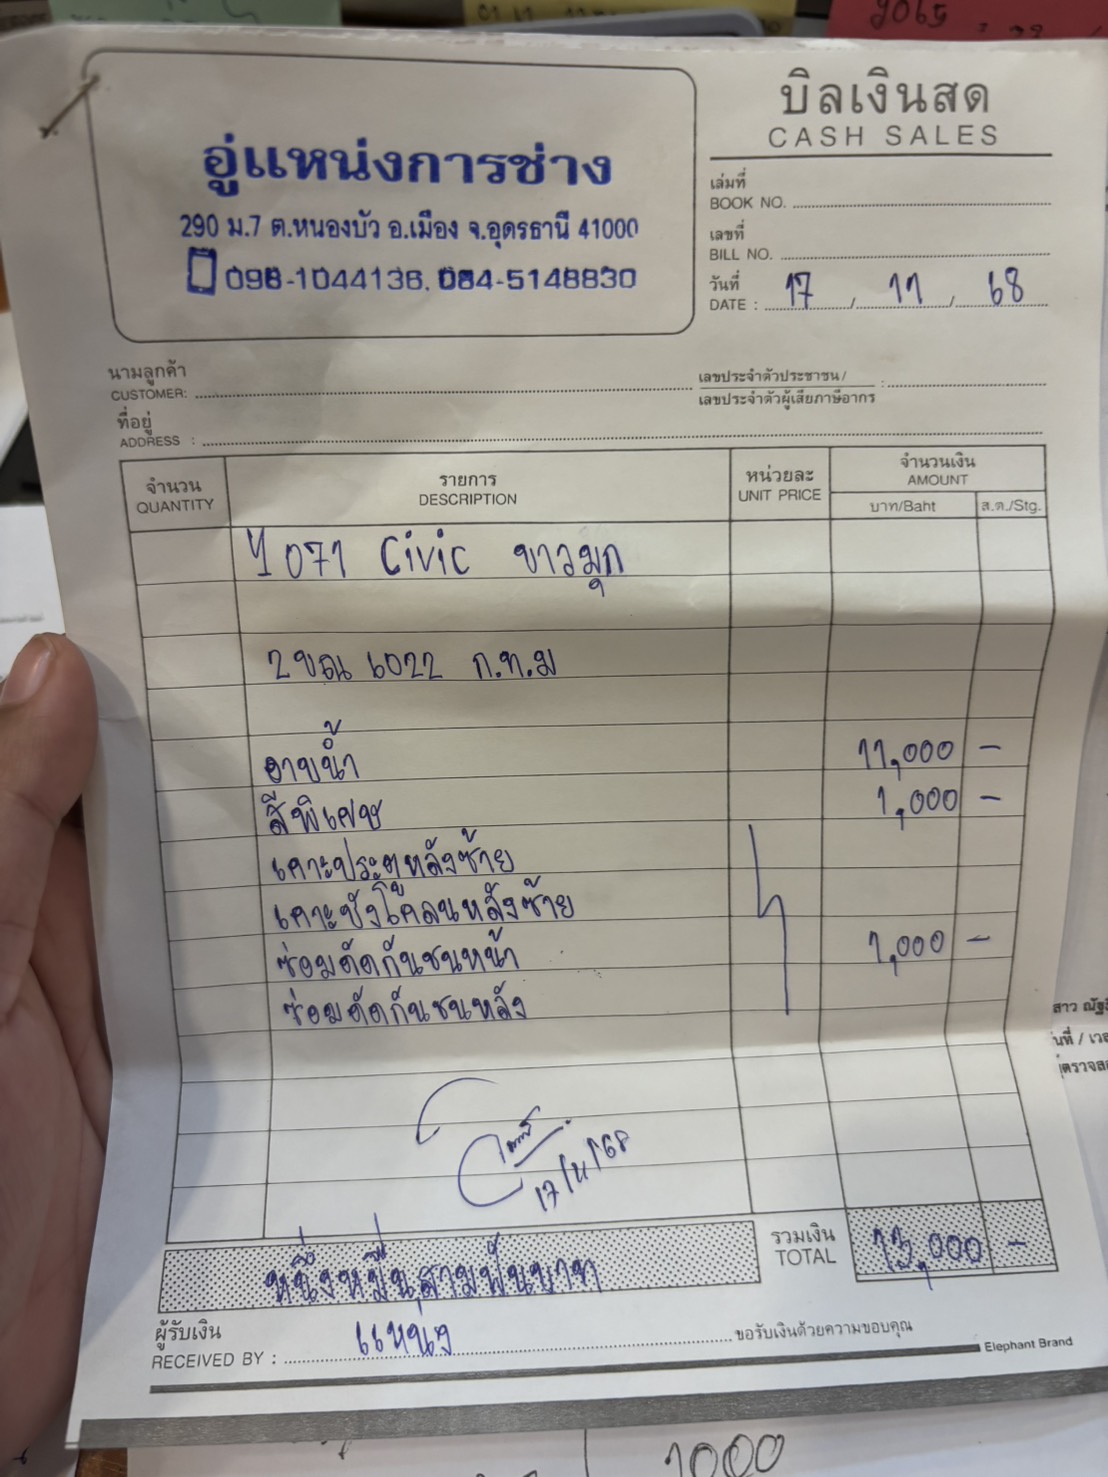 บิลเงินสด
CASH SALES
อู่แหน่งการช่าง
290 ม.7 ต.หนองบัว อ.เมือง จ.อุดรธานี 41000
098-1044136, 084-5148830
เล่มที่
BOOK NO.
เลขที่
BILL NO.
วันที่
DATE : 17 / 11 / 68
นามลูกค้า
CUSTOMER:
เลขประจำตัวประชาชน /
เลขประจำตัวผู้เสียภาษีอากร
ที่อยู่
ADDRESS :
จำนวน QUANTITY รายการ DESCRIPTION หน่วยละ UNIT PRICE จำนวนเงิน AMOUNT
บาท/Baht ส.ต./Stg.
071 Civic ขาวมุก
2ขณ 6022 ก.ท.ม
อาบน้ำ 11,000 -
สีพิเศษ 1,000 -
เคาะประตูหลังซ้าย
เคาะบังโคลนหลังซ้าย
ซ่อมดัดกันชนหน้า 1,000 -
ซ่อมดัดกันชนหลัง
17/11/68
หนึ่งหมื่นสามพันบาท
รวมเงิน
TOTAL 13,000 -
ผู้รับเงิน
RECEIVED BY : แหน่ง ขอรับเงินด้วยความขอบคุณ
Elephant Brand
1000